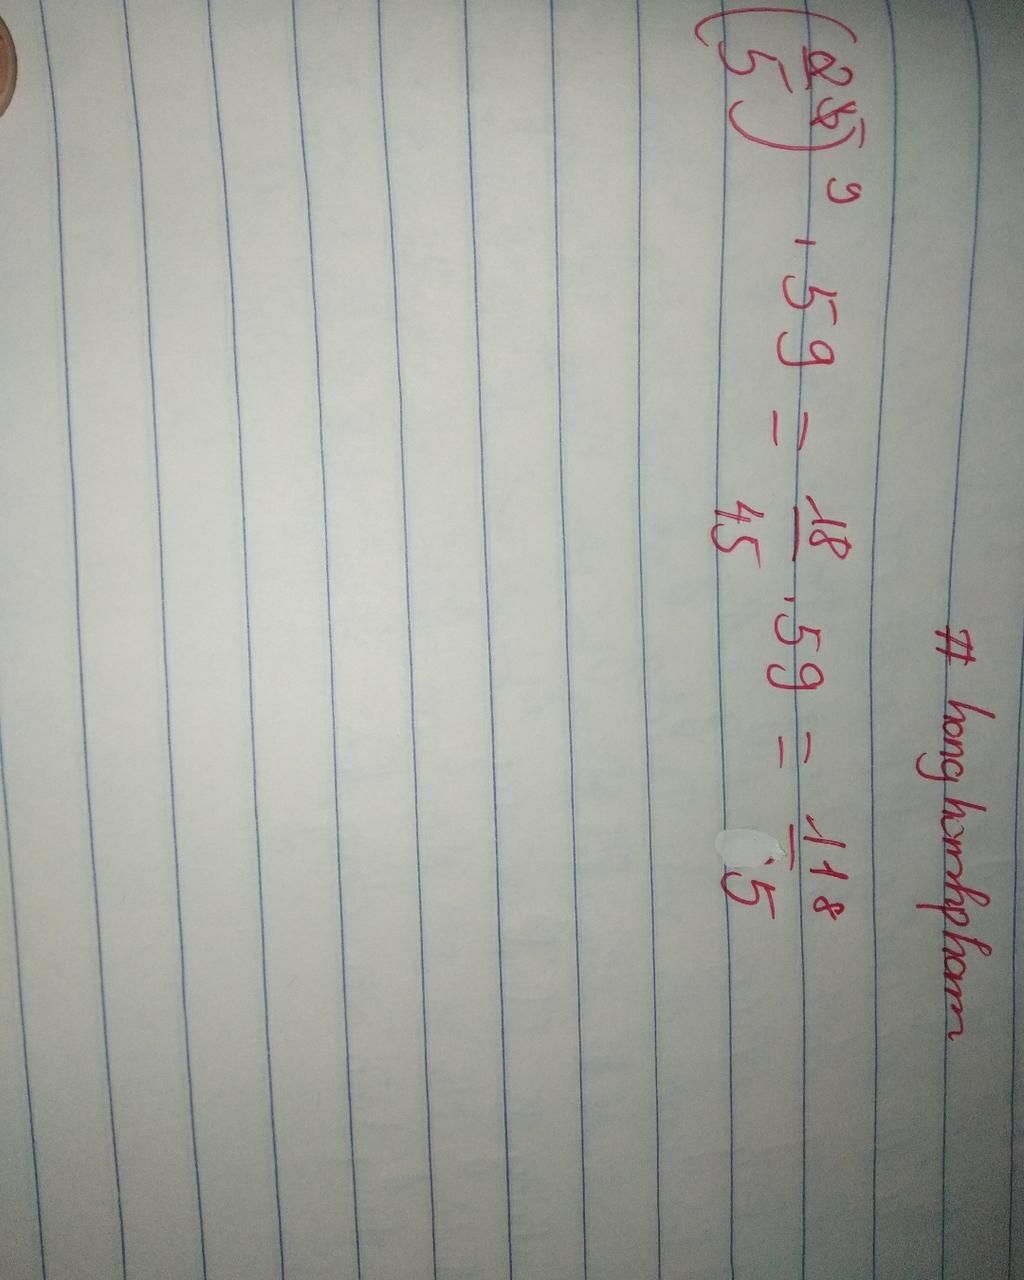 # honghanhpham
(2/5)⁹ . 59 = 18/45 . 59 = 118/5